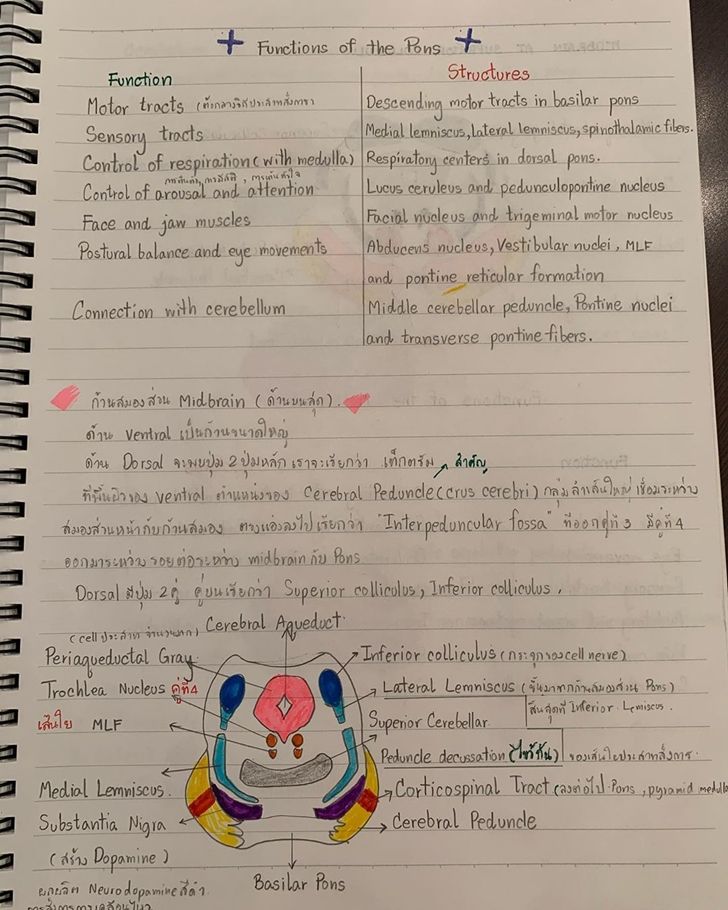 Functions of the Pons
Function Structures
Motor tracts Descending motor tracts in basilar pons
Sensory tracts Medial lemniscus, lateral lemniscus, spinothalamic fibers.
Control of respiration (with medulla) Respiratory centers in dorsal pons.
Control of arousal and attention Lucus ceruleus and pedunculopontine nucleus
Face and jaw muscles Facial nucleus and trigeminal motor nucleus
Postural balance and eye movements Abducens nucleus, Vestibular nuclei, MLF
and pontine reticular formation
Connection with cerebellum Middle cerebellar peduncle, Pontine nuclei
and transverse pontine fibers.
ก้านสมองส่วน Midbrain (ด้านบนสุด).
ด้าน ventral เป็นก้านขนาดใหญ่
ด้าน Dorsal จะพบปุ่ม 2 ปุ่มหลัก เราจะเรียกว่า เท็กตรัม สำคัญ
ที่พื้นผิวของ ventral ตำแหน่งของ Cerebral Peduncle (crus cerebri) กลุ่มลำเส้นใหญ่ เชื่อมระหว่าง
สมองส่วนหน้ากับก้านสมอง ตรงแอ่งลงไปเรียกว่า "Interpeduncular fossa" ที่ออกคู่ที่ 3 มีคู่ที่ 4
ออกมาระหว่างรอยต่อระหว่าง midbrain กับ Pons
Dorsal มีปุ่ม 2 คู่ คู่บนเรียกว่า Superior colliculus, Inferior colliculus.
(cell ประสาท จำนวนมาก) Cerebral Aqueduct
Periaqueductal Gray Inferior colliculus (กระจุกของ cell nerve)
Trochlea Nucleus คู่ที่4 Lateral Lemniscus (ขึ้นมาจากก้านสมองส่วน Pons)
สิ้นสุดที่ Inferior Lemiscus.
เส้นใย MLF Superior Cerebellar
Peduncle decussation (ไขว้กัน) ของเส้นใยประสาทสั่งการ
Medial Lemniscus. Corticospinal Tract (ลงต่อไป Pons, pyramid medulla
Substantia Nigra Cerebral Peduncle
(สร้าง Dopamine)
Basilar Pons
Neurodopamine สีดำ